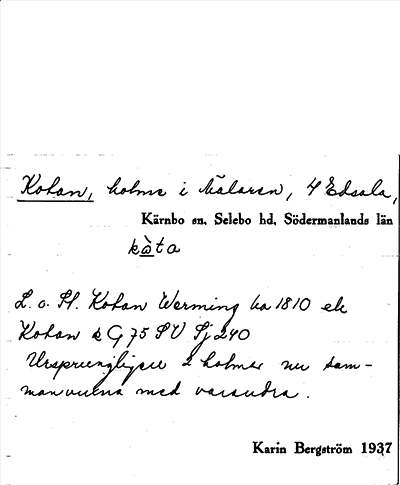 Kotan, holme i Mälaren, Edsala,
Kärnbo sn, Selebo hd, Södermanlands län
kàta
L. o. St. Kotan Werming ka 1810 ek
Kotan k G 75 SV Sj 240
Ursprungligen 2 holmar nu sam-
manvuxna med varandra.
Karin Bergström 1937